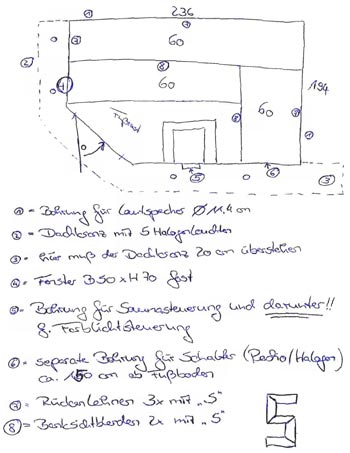 ① 236
② ⑦ 60
⑧
④ 60 60 194
Fußrost ⑧ ⑦ ①
①
⑤ ⑥ ③
① = Bohrung für Lautsprecher Ø 11,4 cm
② = Dachkranz mit 5 Halogenleuchten
③ = hier muß der Dachkranz 20 cm überstehen
④ = Fenster B50 x H70 fest
⑤ = Bohrung für Saunasteuerung und darunter!!
f. Farblichtsteuerung
⑥ = separate Bohrung für Schalter (Radio/Halogen)
ca. 150 cm ab Fußboden
⑦ = Rückenlehnen 3x mit „S“
⑧ = Banksichtblenden 2x mit „S“
S